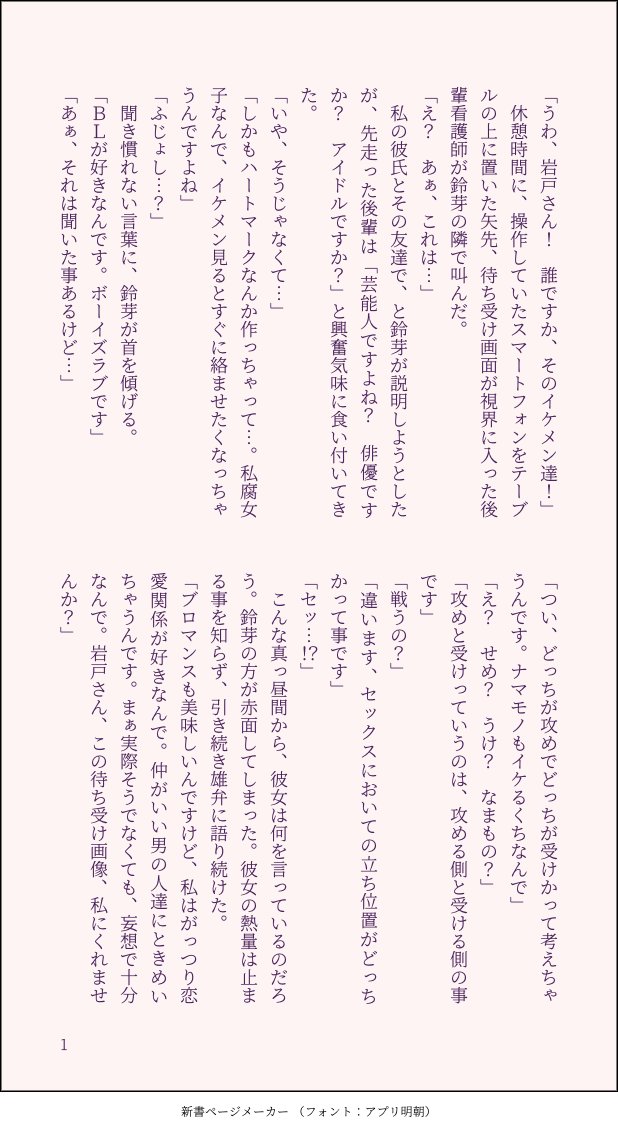 「うわ、岩戸さん！　誰ですか、そのイケメン達！」
　休憩時間に、操作していたスマートフォンをテーブ
ルの上に置いた矢先、待ち受け画面が視界に入った後
輩看護師が鈴芽の隣で叫んだ。
「え？　あぁ、これは…」
　私の彼氏とその友達で、と鈴芽が説明しようとした
が、先走った後輩は「芸能人ですよね？　俳優です
か？　アイドルですか？」と興奮気味に食い付いてき
た。
「いや、そうじゃなくて…」
「しかもハートマークなんか作っちゃって…。私腐女
子なんで、イケメン見るとすぐに絡ませたくなっちゃ
うんですよね」
「ふじょし…？」
　聞き慣れない言葉に、鈴芽が首を傾げる。
「ＢＬが好きなんです。ボーイズラブです」
「あぁ、それは聞いた事あるけど…」
「つい、どっちが攻めでどっちが受けかって考えちゃ
うんです。ナマモノもイケるくちなんで」
「え？　せめ？　うけ？　なまもの？」
「攻めと受けっていうのは、攻める側と受ける側の事
です」
「戦うの？」
「違います、セックスにおいての立ち位置がどっち
かって事です」
「セッ…⁉」
　こんな真っ昼間から、彼女は何を言っているのだろ
う。鈴芽の方が赤面してしまった。彼女の熱量は止ま
る事を知らず、引き続き雄弁に語り続けた。
「ブロマンスも美味しいんですけど、私はがっつり恋
愛関係が好きなんで。仲がいい男の人達にときめい
ちゃうんです。まぁ実際そうでなくても、妄想で十分
なんで。岩戸さん、この待ち受け画像、私にくれませ
んか？」
1
新書ページメーカー （フォント：アプリ明朝）